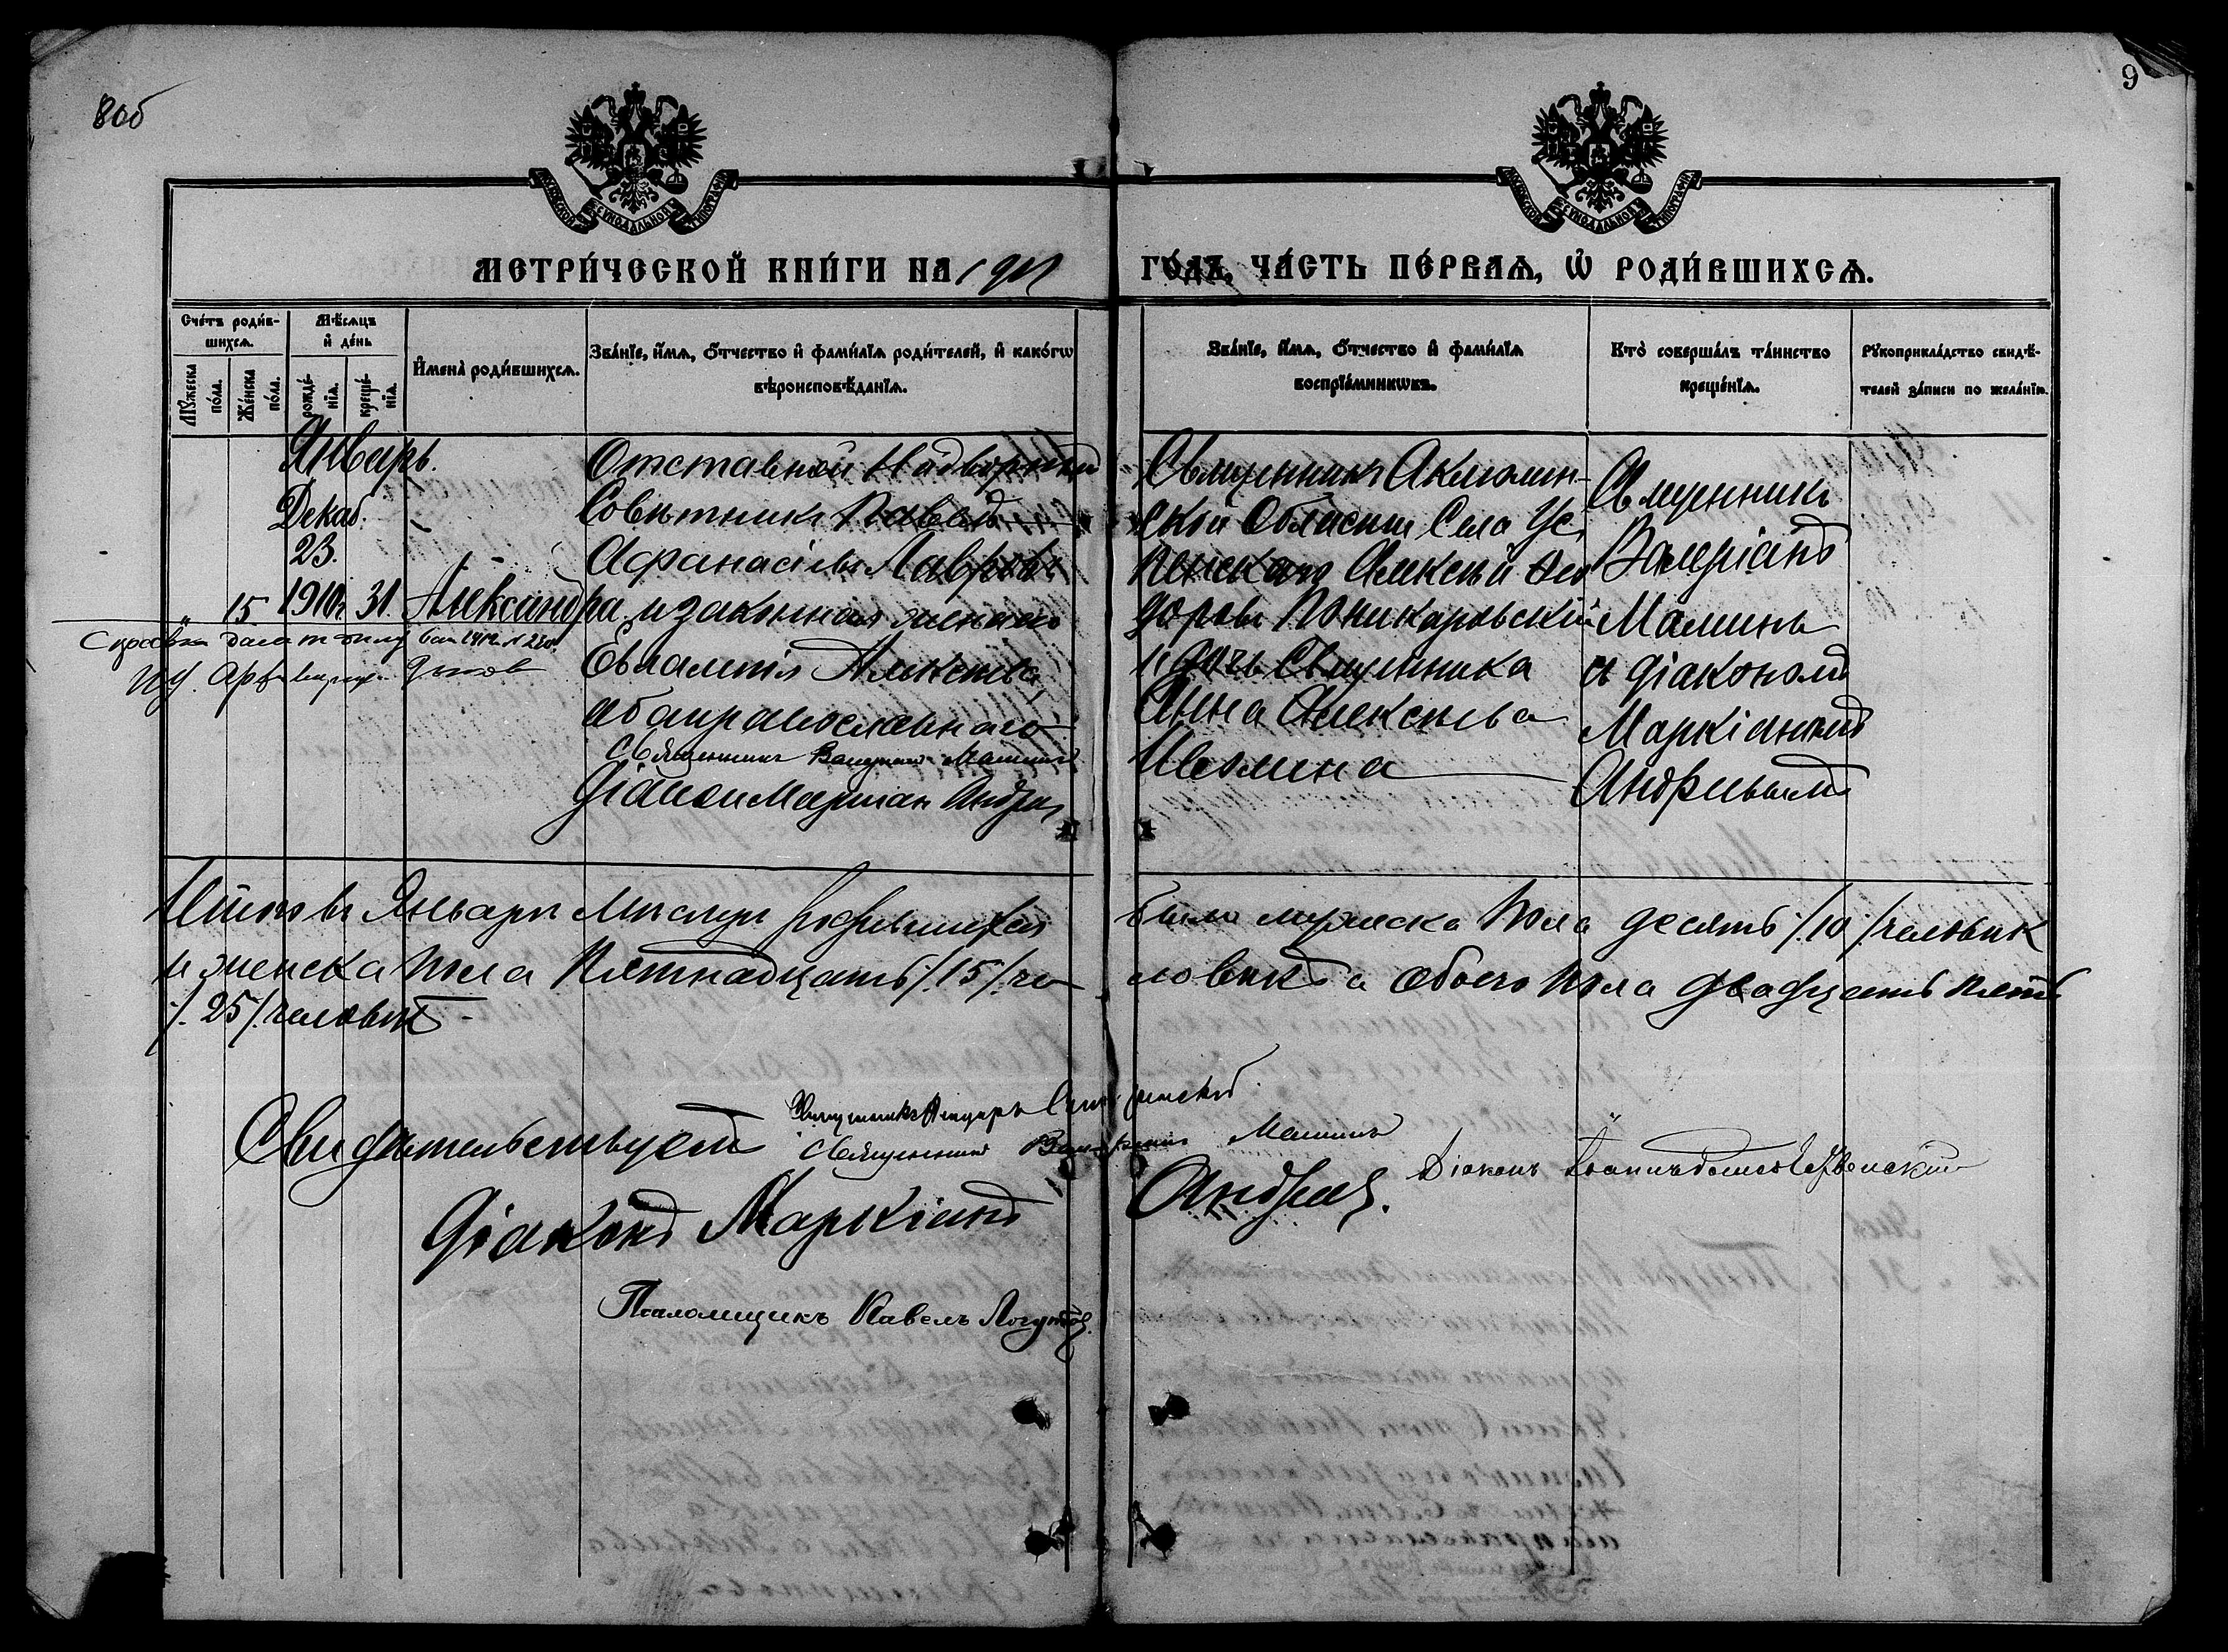 8об
9
МОСКОВСКОЙ СѴНОДАЛЬНОЙ ТИПОГРАФІИ
МОСКОВСКОЙ СѴНОДАЛЬНОЙ ТИПОГРАФІИ
МЕТРИ́ЧЕСКОЙ КНИ́ГИ НА 1911 ГО́ДЪ, ЧА́СТЬ ПЕ́РВАѦ, Ѡ҆ РОДИ́ВШИХСѦ.
Сче́тъ роди́в-
шихсѧ.
Мѣ́сѧцъ
и҆ де́нь
Мꙋ́жеска
по́ла.
Же́нска
по́ла.
рожде́-
нїѧ.
креще́-
нїѧ.
И҆мена̀ роди́вшихсѧ.
Зва́нїе, и҆́мѧ, ѻ҆́тчество и҆ фами́лїѧ роди́телей, и҆ како́гѡ
вѣроисповѣ́данїѧ.
Зва́нїе, и҆́мѧ, ѻ҆́тчество и҆ фами́лїѧ
воспрїе́мникѡвъ.
Кто̀ соверша́лъ та́инство
креще́нїѧ.
Рꙋкоприкла́дство свидѣ́-
телей за́писи по жела́нїю.
Январь.
Декаб.
23.
1910г. 31.
" 15
Александра
Отставной Надворный
Совѣтникъ Павелъ
Афанасіевъ Лавровъ
и законная жена его
Евлампія Алексѣева
оба православнаго
Священникъ Валеріанъ Малинъ
Діаконъ Маркіан Андреев
Священникъ Акмолин-
ской Области Села Ус-
пенскаго Алексѣй Ѳео
доровъ Поникаровскій
и дочь Священника
Анна Алексѣева
Иволина
Священникъ
Валеріанъ
Малинъ
съ діакономъ
Маркіаномъ
Андреевымъ
Справка дана
Итого въ Январѣ Мѣсяцѣ родившихся было мужеска пола десять /.10./ человѣкъ
и женска пола пятнадцать /.15./ че ловѣкъ а обоего пола двадцать пять
/. 25 /. человѣкъ
Свидѣтельствуетъ
Священникъ Валеріанъ Малинъ
Діаконъ Маркіанъ Андреев.
Діаконъ Іоаннъ
Псаломщикъ Павелъ